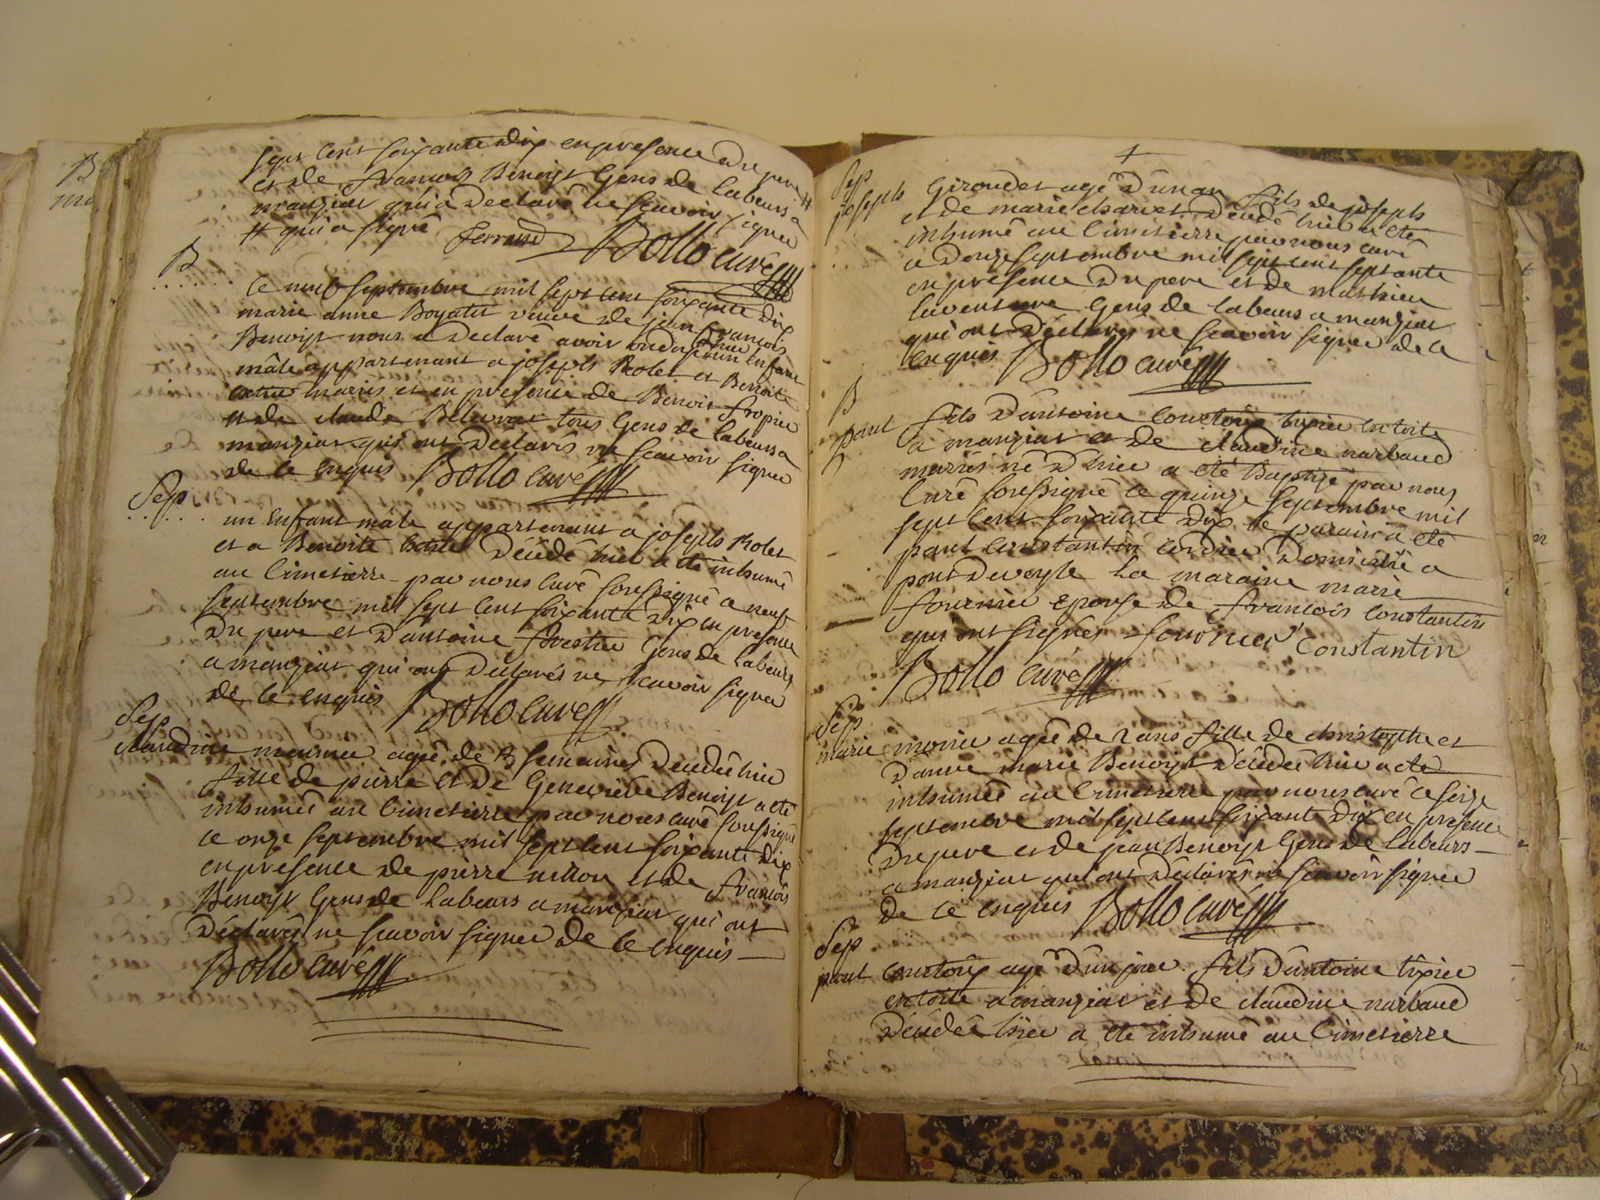 B
sept cent soixante dix en presence du pere #
et de francois Benoist Gens de labeurs a
manziat qui a declaré ne scavoir signer
# qui a signé ferrand Bollo curé
B
le neuf septembre mil sept cent soixante dix
marie anne Boyatit veuve de jean francois
Benoist nous a declaré avoir ondoyé un enfant
mâle appartenant a joseph Rolet et Benoite
mariés et en presence de Benoit
et de claude tous Gens de labeurs a
manziat qui ont declarés ne scavoir signer
de ce enquis Bollo curé
Sep
un Enfant mâle appartenant a joseph Rolet
et a Benoite décédé hier a eté inhumé
au Cimetierre par nous curé soussigné ce neuf
septembre mil sept cent soixante dix en presence
du pere et d'antoine forestier Gens de labeurs
a manziat qui ont declarés ne scavoir signer
de ce enquis Bollo curé
Sep
claudine meunier agée de 3 semaines decedée hier
fille de pierre et de Genevieve Benoist a eté
inhumée au Cimetierre par nous curé soussigné
ce onze septembre mil sept cent soixante dix
en presence de pierre et de francois
Benoist Gens de labeurs a manziat qui ont
déclarés ne scavoir signer de ce enquis
Bollo curé
+
Sep
joseph Giroudet agé d'un an fils de joseph
et de marie décédé hier a eté
inhumé au Cimetierre par nous curé
ce douze septembre mil sept cent septante
en presence du pere et de mathieu
Gens de labeurs a manziat
qui ont déclarés ne scavoir signer de ce
enquis Bollo curé
B
paul fils d'antoine
a manziat et de claudine narbaud
mariés né d'hier a eté Baptizé par nous
Curé soussigné le quinze septembre mil
sept cent soixante dix le parain a eté
paul constantin domicilié a
pont de veyle la maraine marie
fournier epouse de francois constantin
qui ont signés fournier Constantin
Bollo curé
Sep
marie agée de 2 ans fille de christophe et
d'anne marie Benoist décédée hier a eté
inhumée au Cimetierre par nous curé ce seize
septembre mil sept cent soixante dix en presence
du pere et de jean Benoist Gens de labeurs
a manziat qui ont déclarés ne scavoir signer
de ce enquis Bollo curé
Sep
paul agé d'un jour fils d'antoine
a manziat et de claudine narbaud
décédé hier a eté inhumé au Cimetierre